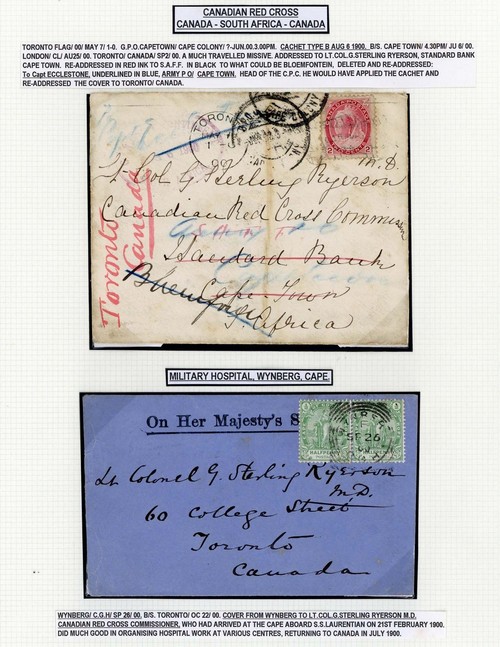 CANADIAN RED CROSS
CANADA - SOUTH AFRICA - CANADA
TORONTO FLAG/ 00/ MAY 7/ 1-0. G.P.O.CAPETOWN/ CAPE COLONY/ ?-JUN.00.3.00PM. CACHET TYPE B AUG 6 1900. B/S. CAPE TOWN/ 4.30PM/ JU 6/ 00.
LONDON/ CL/ AU25/ 00. TORONTO/ CANADA/ SP2/ 00. A MUCH TRAVELLED MISSIVE. ADDRESSED TO LT.COL.G.STERLING RYERSON, STANDARD BANK
CAPE TOWN. RE-ADDRESSED IN RED INK TO S.A.F.F. IN BLACK TO WHAT COULD BE BLOEMFONTEIN, DELETED AND RE-ADDRESSED:
To Capt ECCLESTONE, UNDERLINED IN BLUE, ARMY P O/ CAPE TOWN. HEAD OF THE C.P.C. HE WOULD HAVE APPLIED THE CACHET AND
RE-ADDRESSED THE COVER TO TORONTO/ CANADA.
TORONTO
Lt Col G Sterling Ryerson M.D.
Canadian Red Cross Commission
Standard Bank
Cape Town
S. Africa
Toronto
Canada
MILITARY HOSPITAL, WYNBERG, CAPE.
On Her Majesty's S
HALFPENNY HALFPENNY
SP 26
Lt Colonel G. Sterling Ryerson
M.D.
60 College Street
Toronto
Canada
WYNBERG/ C.G.H/ SP 26/ 00, B/S. TORONTO/ OC 22/ 00. COVER FROM WYNBERG TO LT.COL.G.STERLING RYERSON M.D.
CANADIAN RED CROSS COMMISSIONER, WHO HAD ARRIVED AT THE CAPE ABOARD S.S.LAURENTIAN ON 21ST FEBRUARY 1900.
DID MUCH GOOD IN ORGANISING HOSPITAL WORK AT VARIOUS CENTRES, RETURNING TO CANADA IN JULY 1900.